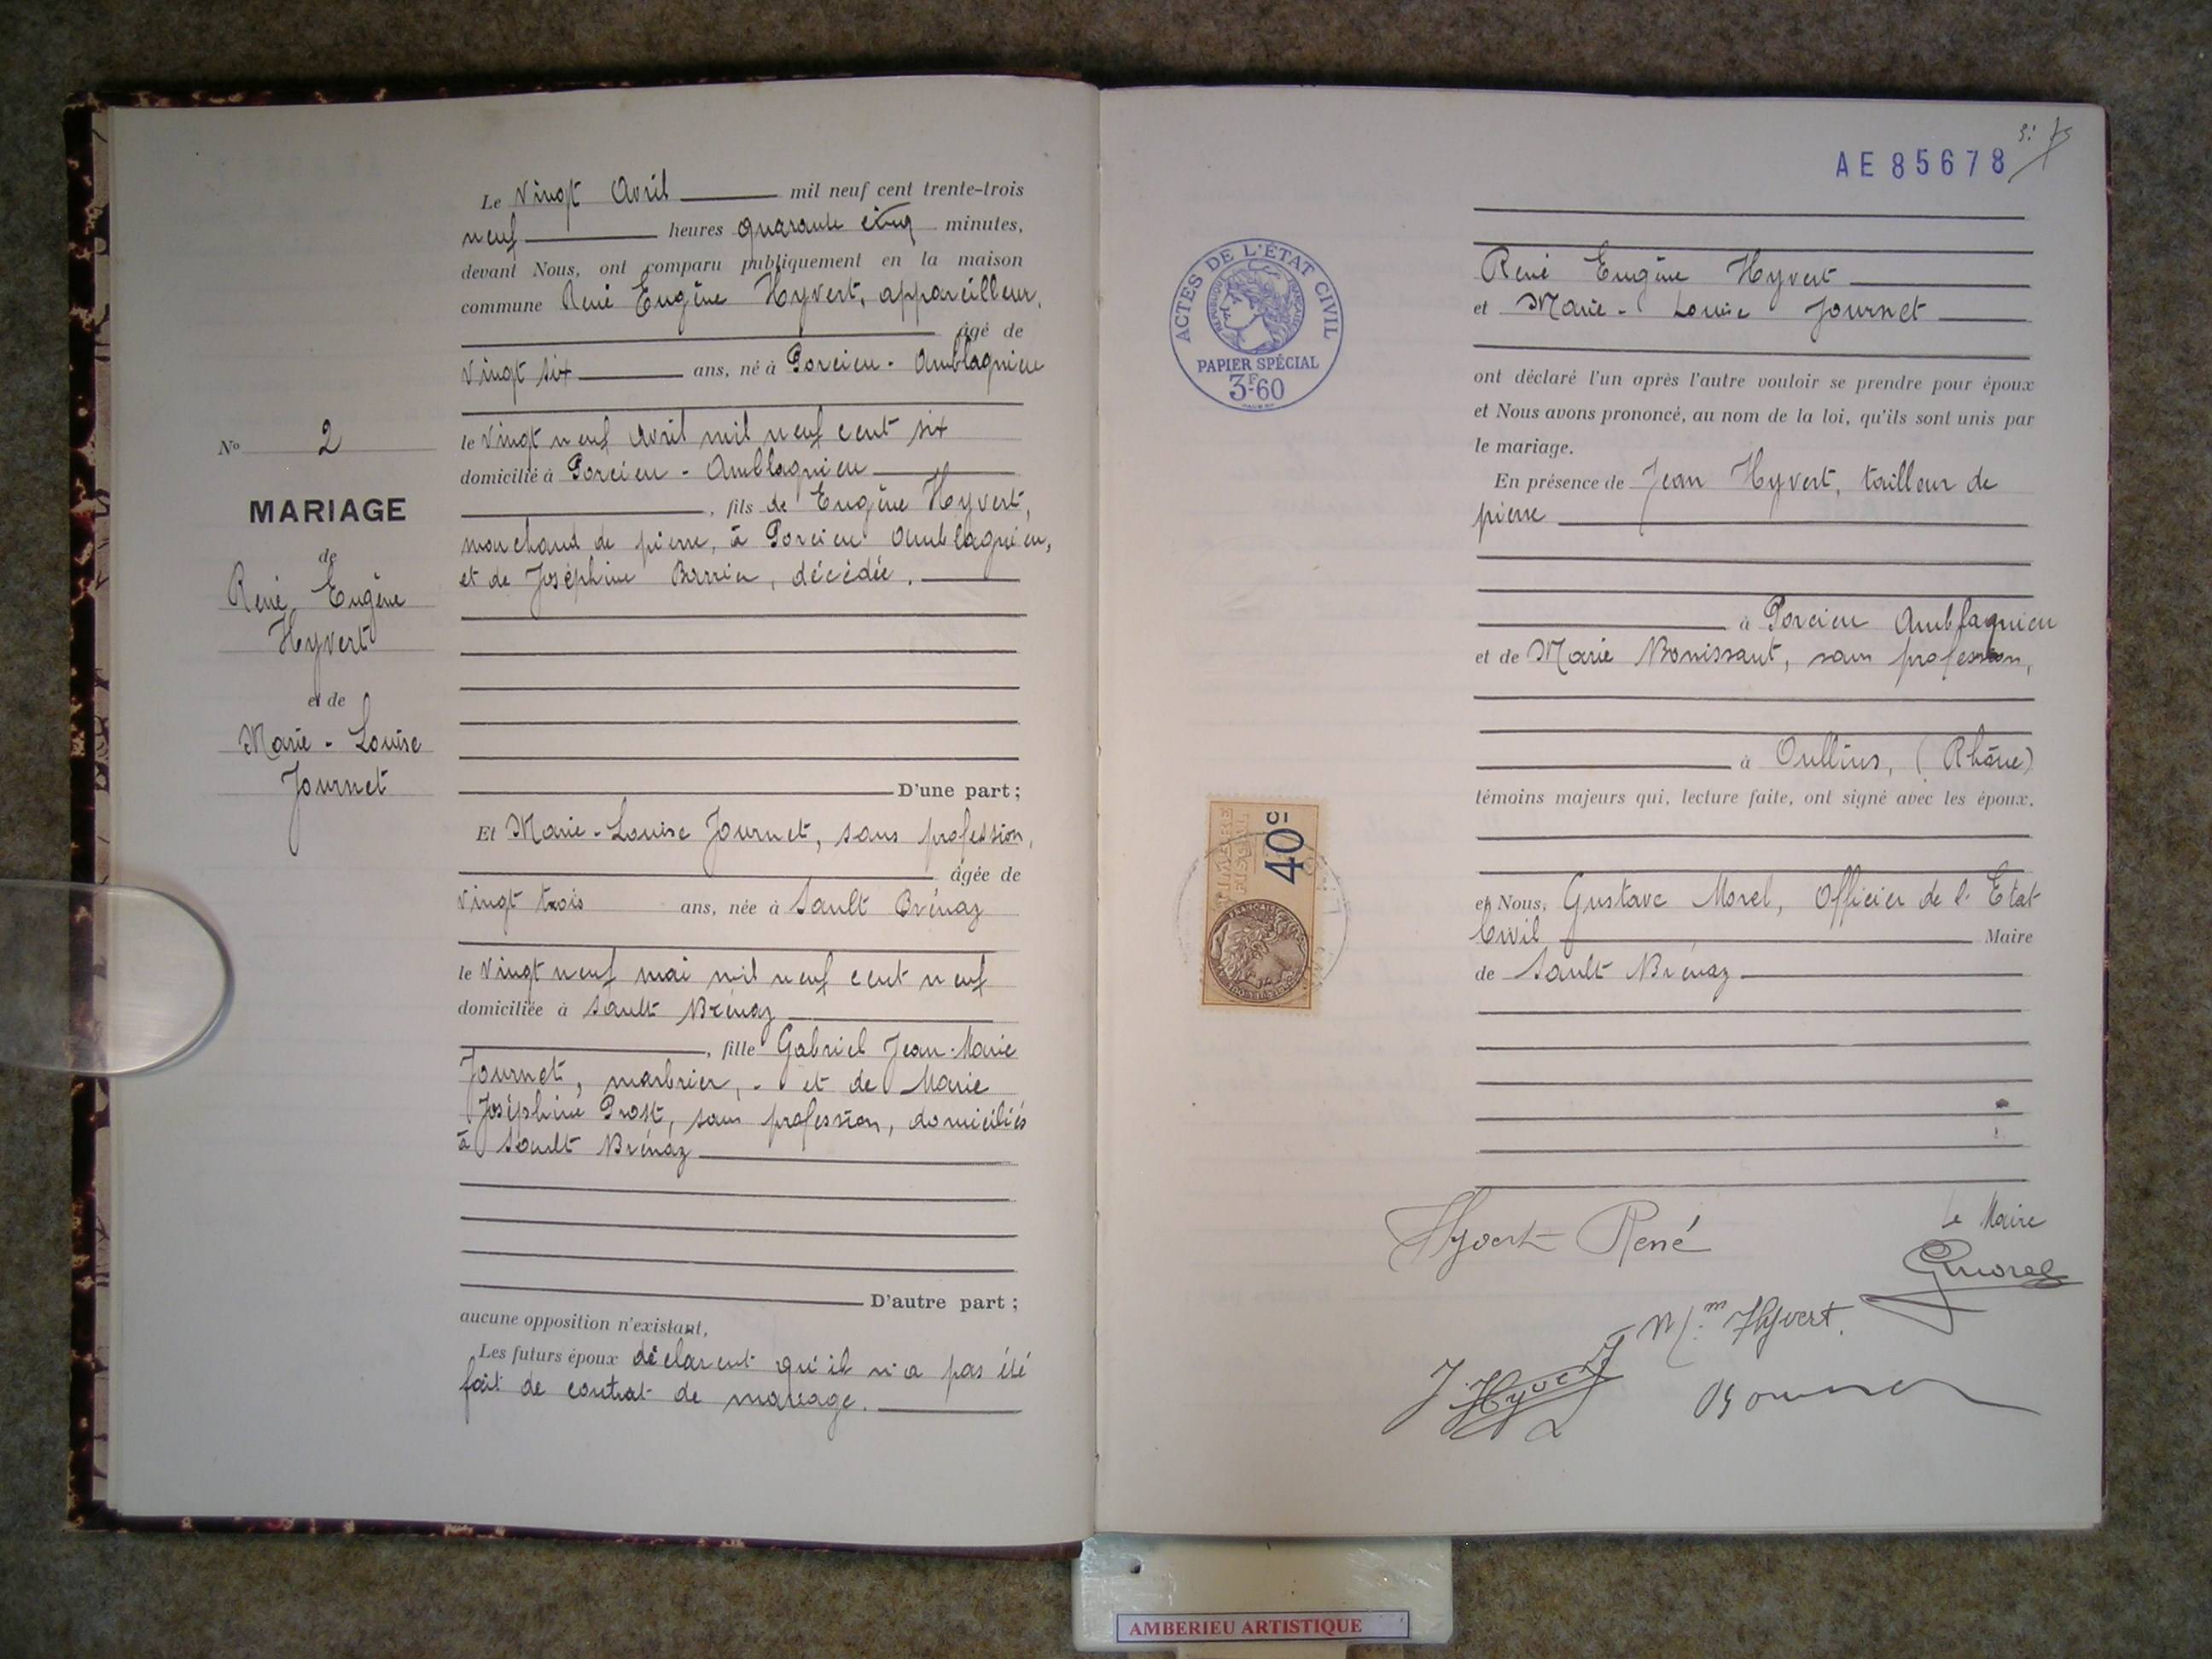 Le vingt Avril mil neuf cent trente-trois
neuf heures quarante cinq minutes,
devant Nous, ont comparu publiquement en la maison
commune René Eugène Hyvert, appareilleur,
âgé de
vingt six ans, né à Porcieu - Amblagnieu
le vingt neuf Avril mil neuf cent six
domicilié à Porcieu - Amblagnieu
, fils de Eugène Hyvert,
marchand de pierre, à Porcieu Amblagnieu,
et de Joséphine décédée.
D'une part ;
No 2
MARIAGE
de
René Eugène
Hyvert
et de
Marie - Louise
Journet
Et Marie - Louise Journet, sans profession,
âgée de
vingt trois ans, née à Sault Brénaz
le vingt neuf mai mil neuf cent neuf
domiciliée à Sault Brénaz
, fille Gabriel Jean-Marie
Journet, marbrier, - et de Marie
Joséphine Prost, sans profession, domiciliés
à Sault Brénaz
D'autre part ;
aucune opposition n'existant,
Les futurs époux déclarent qu'il n'a pas été
fait de contrat de mariage.
AE 85678
ACTES DE L'ÉTAT CIVIL
RÉPUBLIQUE FRANÇAISE
PAPIER SPÉCIAL
3F.60
René Eugène Hyvert
et Marie - Louise Journet
ont déclaré l'un après l'autre vouloir se prendre pour époux
et Nous avons prononcé, au nom de la loi, qu'ils sont unis par
le mariage.
En présence de Jean Hyvert, tailleur de
pierre
à Porcieu Amblagnieu
et de Marie Bonissant, sans profession,
à Oullins, (Rhône)
témoins majeurs qui, lecture faite, ont signé avec les époux.
TIMBRE
FISCAL
40c
et Nous, Gustave Morel, Officier de l'Etat
Civil Maire
de Sault Brénaz
Hyvert René
Le Maire
GMorel
Hyvert.
J. Hyvert
AMBERIEU ARTISTIQUE